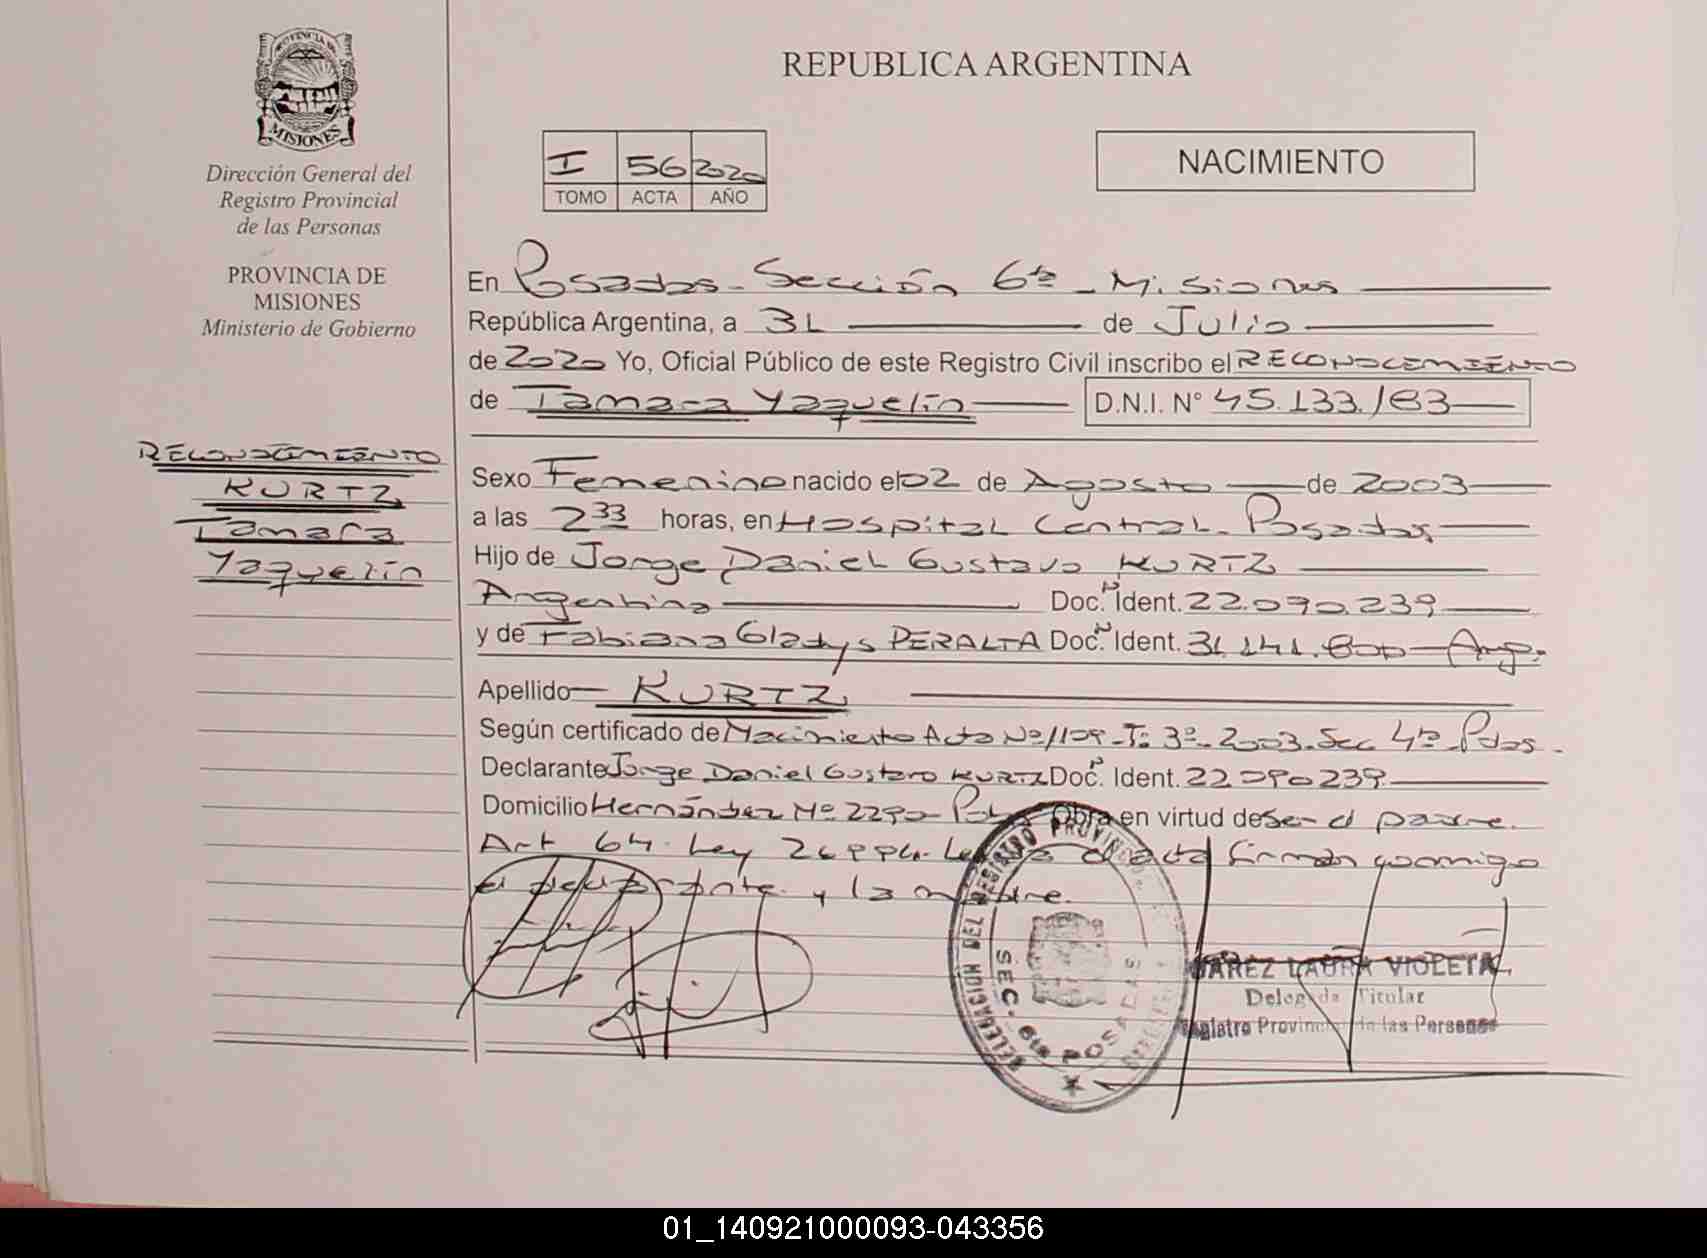 PROVINCIA DE
MISIONES
Dirección General del
Registro Provincial
de las Personas
PROVINCIA DE
MISIONES
Ministerio de Gobierno
RECONOCIMIENTO
KURTZ
Tamara
Yaquelín
REPUBLICA ARGENTINA
I 56 2020
TOMO ACTA AÑO
NACIMIENTO
En Posadas - Sección 6ta - Misiones
República Argentina, a 31 de Julio
de 2020 Yo, Oficial Público de este Registro Civil inscribo el RECONOCIMIENTO
de Tamara Yaquelín D.N.I. N° 45.133.183
Sexo Femenino nacido el 02 de Agosto de 2003
a las 2 33 horas, en Hospital Central - Posadas
Hijo de Jorge Daniel Gustavo KURTZ
Argentino Doc. Ident. 22.090.239
y de Fabiana Gladys PERALTA Doc. Ident. 31.141.800 - Arg.
Apellido KURTZ
Según certificado de Nacimiento Acta Nº 1109 - Tº 3º - 2003 - Sec. 4ta - Pdas.
Declarante Jorge Daniel Gustavo KURTZ Doc. Ident. 22090239
Domicilio Hernández Nº 2290 - Obra en virtud de ser el padre.
Art 64 - Ley 26994 - el acta firman conmigo
el declarante y la madre.
DELEGACION DEL REGISTRO PROVINCIAL
SEC. 6ta POSADAS
LAURA VIOLETA
Delegada Titular
Registro Provincial de las Personas
01_140921000093-043356